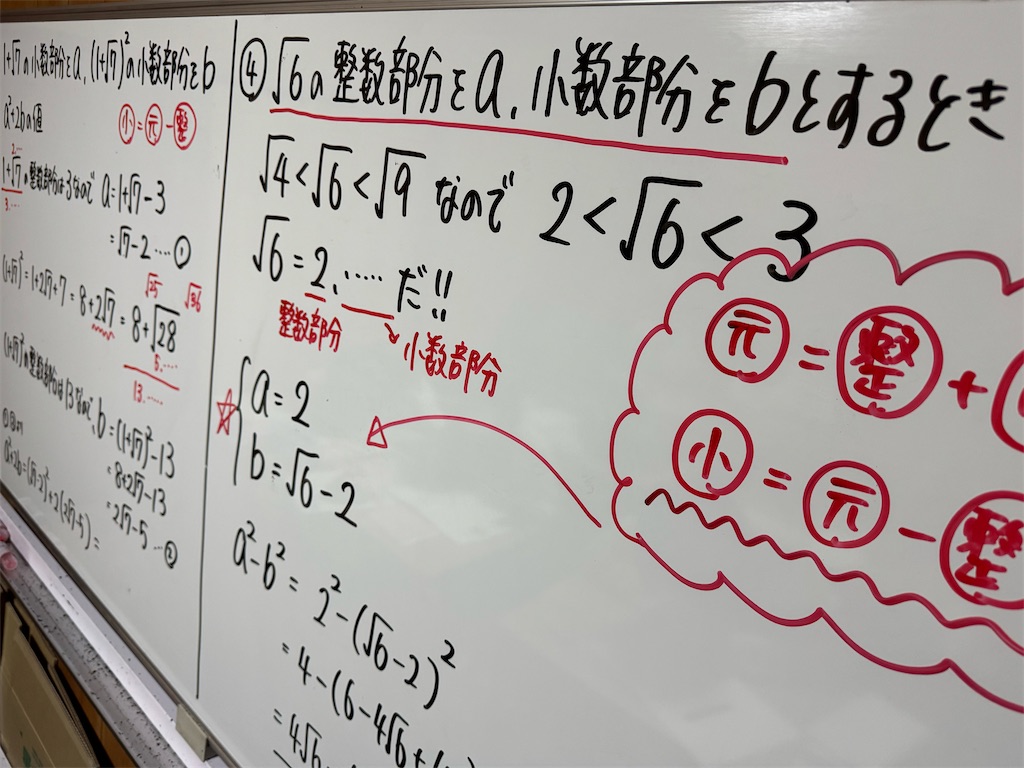 1+√7の小数部分をa,(1+√7)²の小数部分をb
a²+2bの値
小=元-整
2.…
1+√7の整数部分は3なので a=1+√7-3
3.…
=√7-2 …①
√25 √36
(1+√7)²=1+2√7+7=8+2√7=8+√28
5.…
13.…
(1+√7)²の整数部分は13なので、b=(1+√7)²-13
=8+2√7-13
=2√7-5 …②
①②より
a²+2b=(√7-2)²+2(2√7-5)=
④√6の整数部分をa,小数部分をbとするとき
√4<√6<√9なので 2<√6<3
√6=2.……だ!!
整数部分 小数部分
☆ a=2
b=√6-2
元=整+
小=元-整
a²-b²=2²-(√6-2)²
=4-(6-4√6+
=4√6